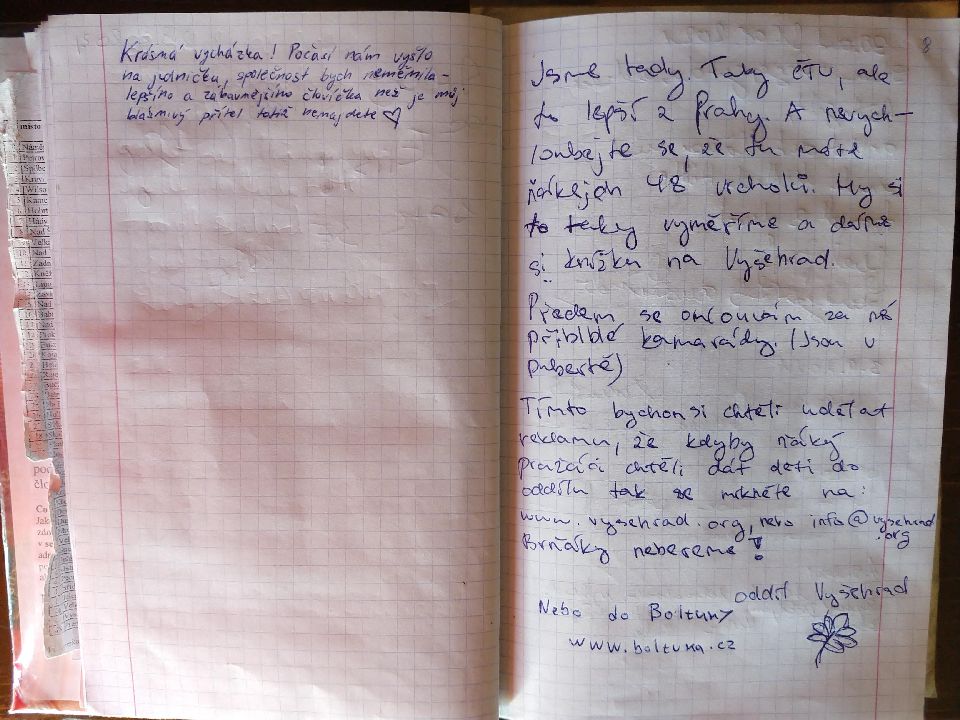 Krásná vycházka! Počasí nám vyšlo
na jedničku, společnost bych neměnila -
lepšího a zábavnějšího človíčka než je můj
bláznivý přítel totiž nenajdete ♡
8
Jsme tady. Taky ČTU, ale
to lepší z Prahy. A nevych-
loubejte se, že tu máte
ňákejch 48 vrcholů. My si
to taky vyměříme a dáme
si knížku na Vyšehrad.
Předem se omlouvám za mé
přiblblé kamarády. (Jsou v
pubertě)
Tímto bychom si chtěli udělat
reklamu, že kdyby ňáký
pražáci chtěli dát deti do
oddílu tak se mrkněte na:
www.vysehrad.org, nebo info@vysehrad
.org
Brňáky nebereme!
oddíl Vyšehrad
Nebo do Boltuny
www.boltuna.cz
místo